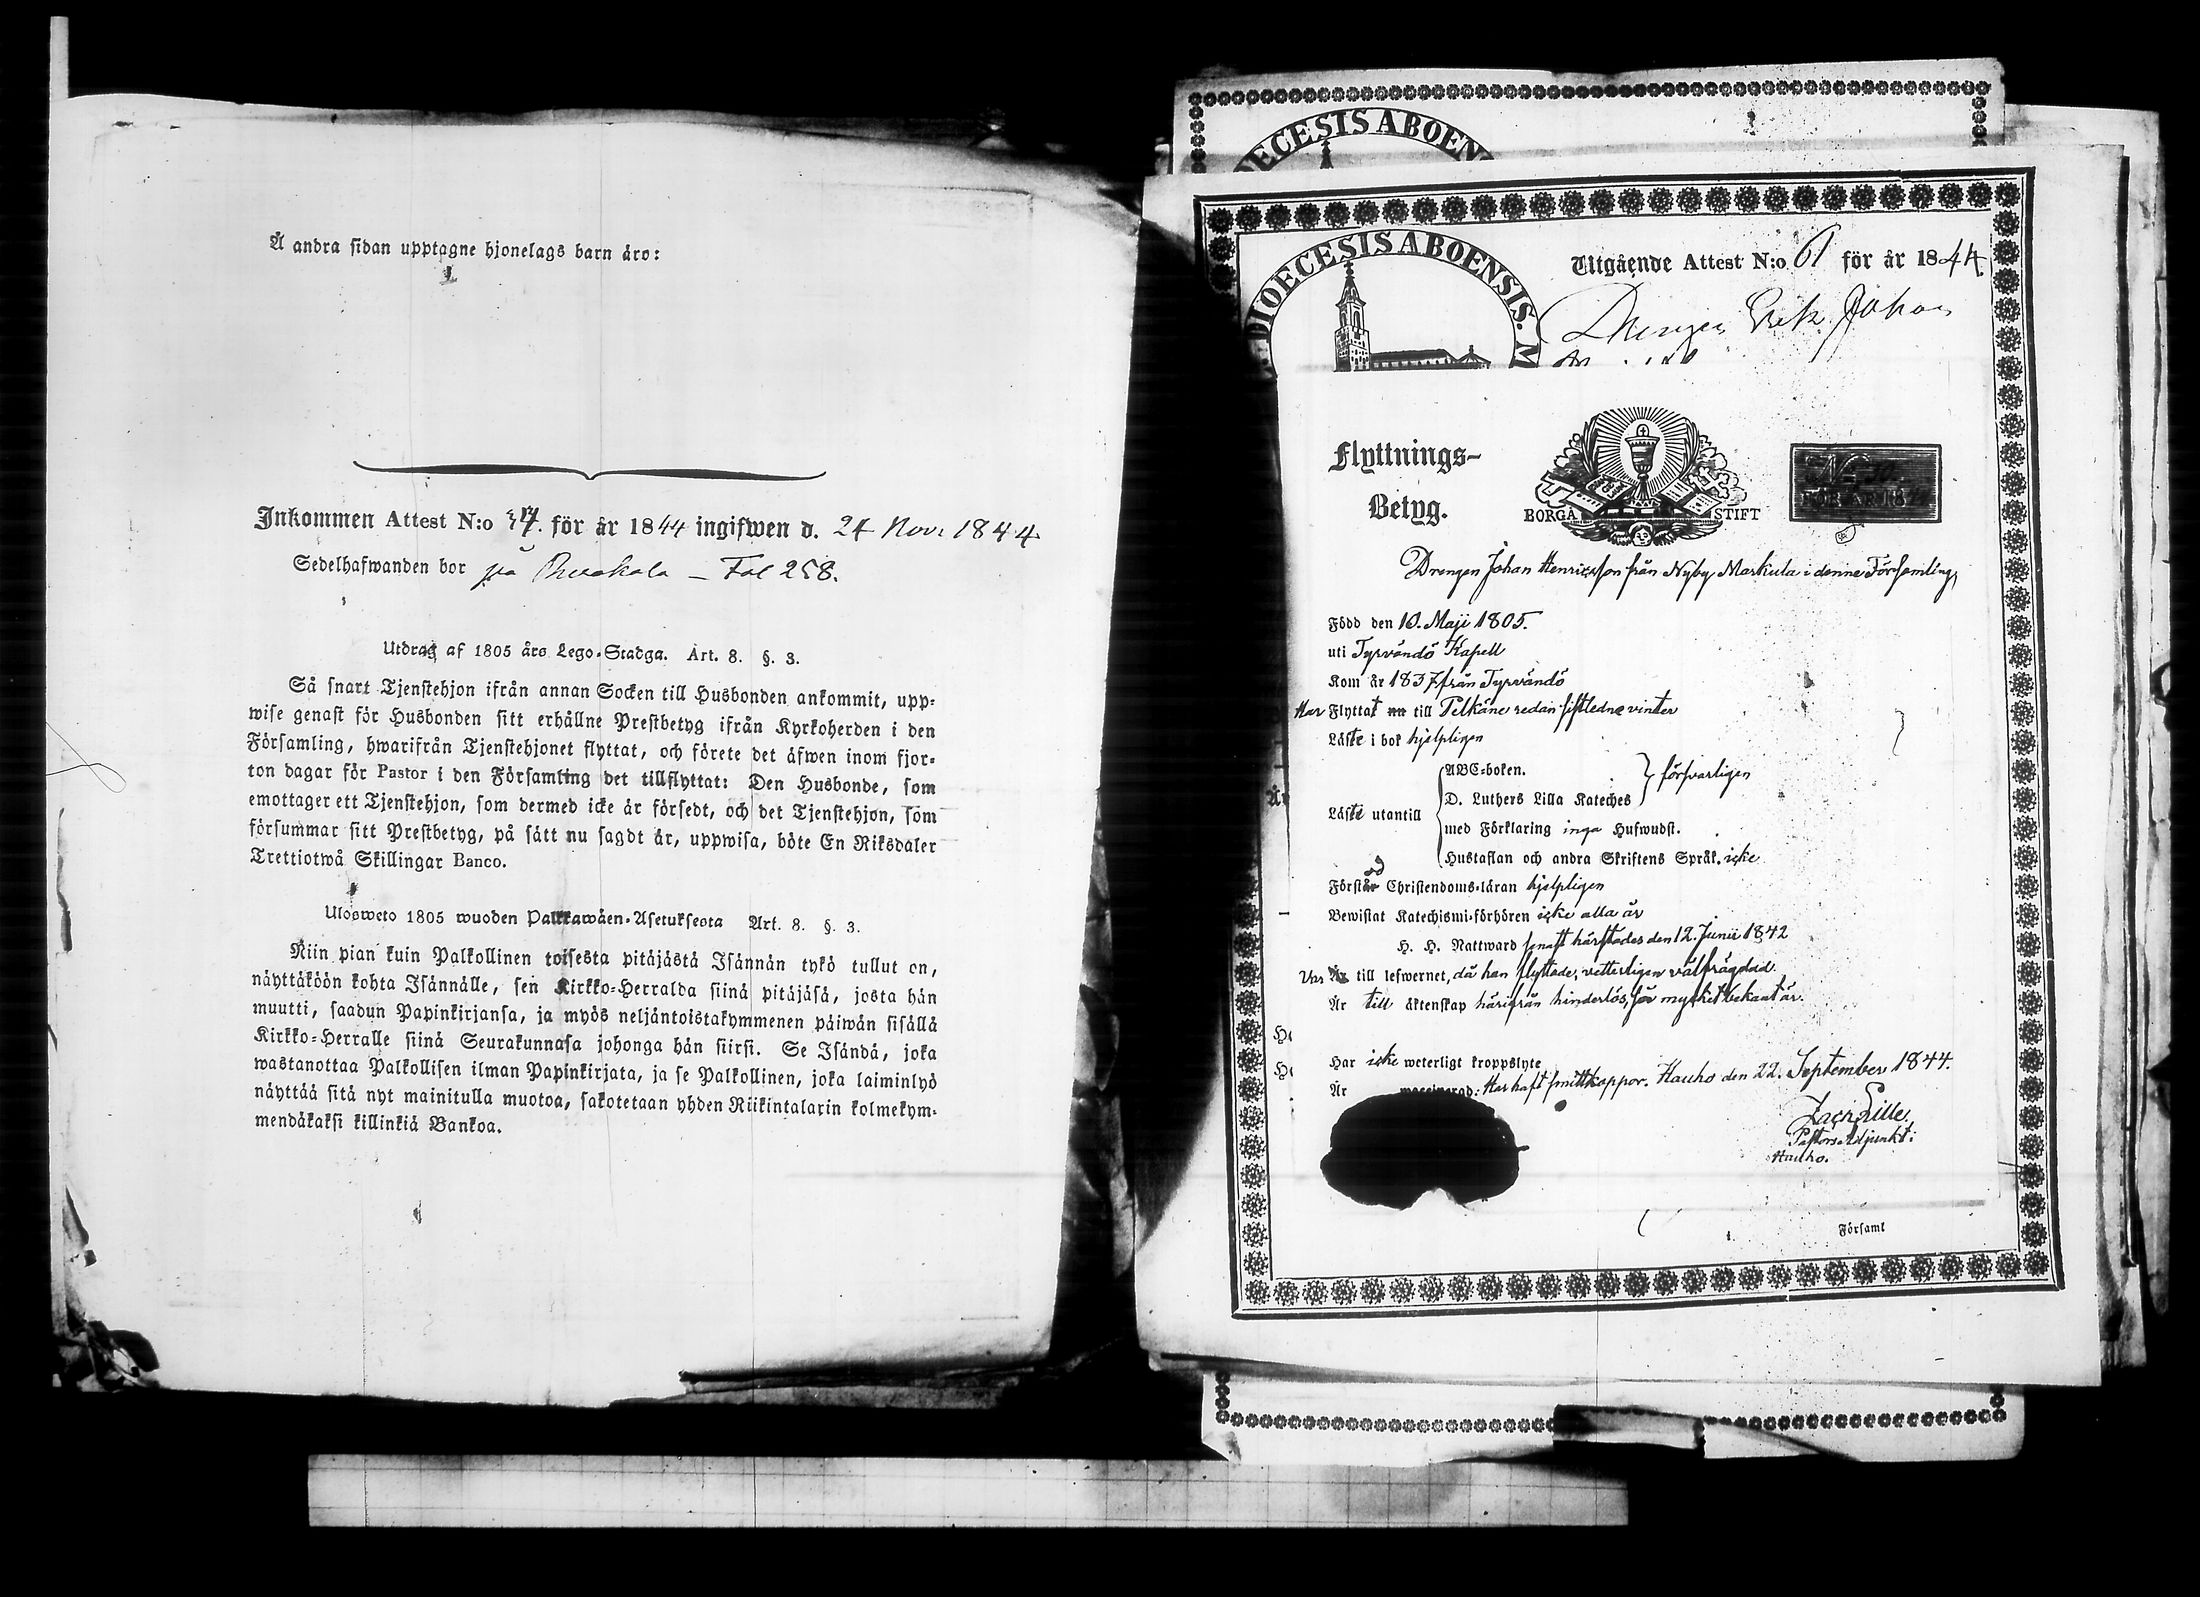 Å andra sidan upptagne hjonelags barn äro:
Inkommen Attest N:o för år 1844 ingifwen d. 24 Nov. 1844
Sedelhafwanden bor på — Fol 258.
Utdrag af 1805 års Lego-Stadga. Art. 8. §. 3.
Så snart Tjenstehjon ifrån annan Socken till Husbonden ankommit, upp-
wise genast för Husbonden sitt erhållne Prestbetyg ifrån Kyrkoherden i den
Församling, hwarifrån Tjenstehjonet flyttat, och förete det äfwen inom fjor-
ton dagar för Pastor i den Församling det tillflyttat: Den Husbonde, som
emottager ett Tjenstehjon, som dermed icke är försedt, och det Tjenstehjon, som
försummar sitt Prestbetyg, på sätt nu sagdt är, uppwisa, böte En Riksdaler
Trettiotwå Skillingar Banco.
Ulosweto 1805 wuoden Palkkawäen-Asetuksesta Art. 8. §. 3.
Niin pian kuin Palkollinen toisesta pitäjästä Isännän tykö tullut on,
näyttäköön kohta Isännälle, sen Kirkko-Herralda siinä pitäjäsä, josta hän
muutti, saadun Papinkirjansa, ja myös neljäntoistakymmenen päiwän sisällä
Kirkko-Herralle siinä Seurakunnasa johonga hän siirsi. Se Isändä, joka
wastanottaa Palkollisen ilman Papinkirjata, ja se Palkollinen, joka laiminlyö
näyttää sitä nyt mainitulla muotoa, sakotetaan yhden Riikintalarin kolmekym-
mendäkaksi killinkiä Bankoa.
DIOECESIS ABOEN
DIOECESIS ABOENSIS. M
Utgående Attest N:o 61 för år 1844.
Drengen Erik Johan
Flyttnings-
Betyg.
BORGÅ STIFT
FÖR ÅR 18
Drengen Johan Henricsson från Nyby Markula i denna Församling,
Född den 10. Maji 1805.
uti Tyrvändö Kapell
Kom år 1837 från Tyrvändö
Har Flyttat nu till Pelkäne redan sistledne vinter
Läste i bok hjelpligen
ABC-boken.
D. Luthers Lilla Kateches } försvarligen
Läste utantill
med Förklaring inga Hufwudst.
Hustaflan och andra Skriftens Språk. icke
Förstod Christendoms-läran hjelpligen
Bewistat Katechismi-förhören icke alla år
H. H. Nattward senast härstädes den 12. Junii 1842
Var till lefwernet, då han flyttade, vetterligen välfrägdad.
Är till äktenskap härifrån hinderlös, för mycket bekant är.
Har icke weterligt kroppslyte
Är Har haft smittkoppor. Hauho den 22. September 1844.
Zach Lille
Pastors Adjunkt i
Hauho.
Församl